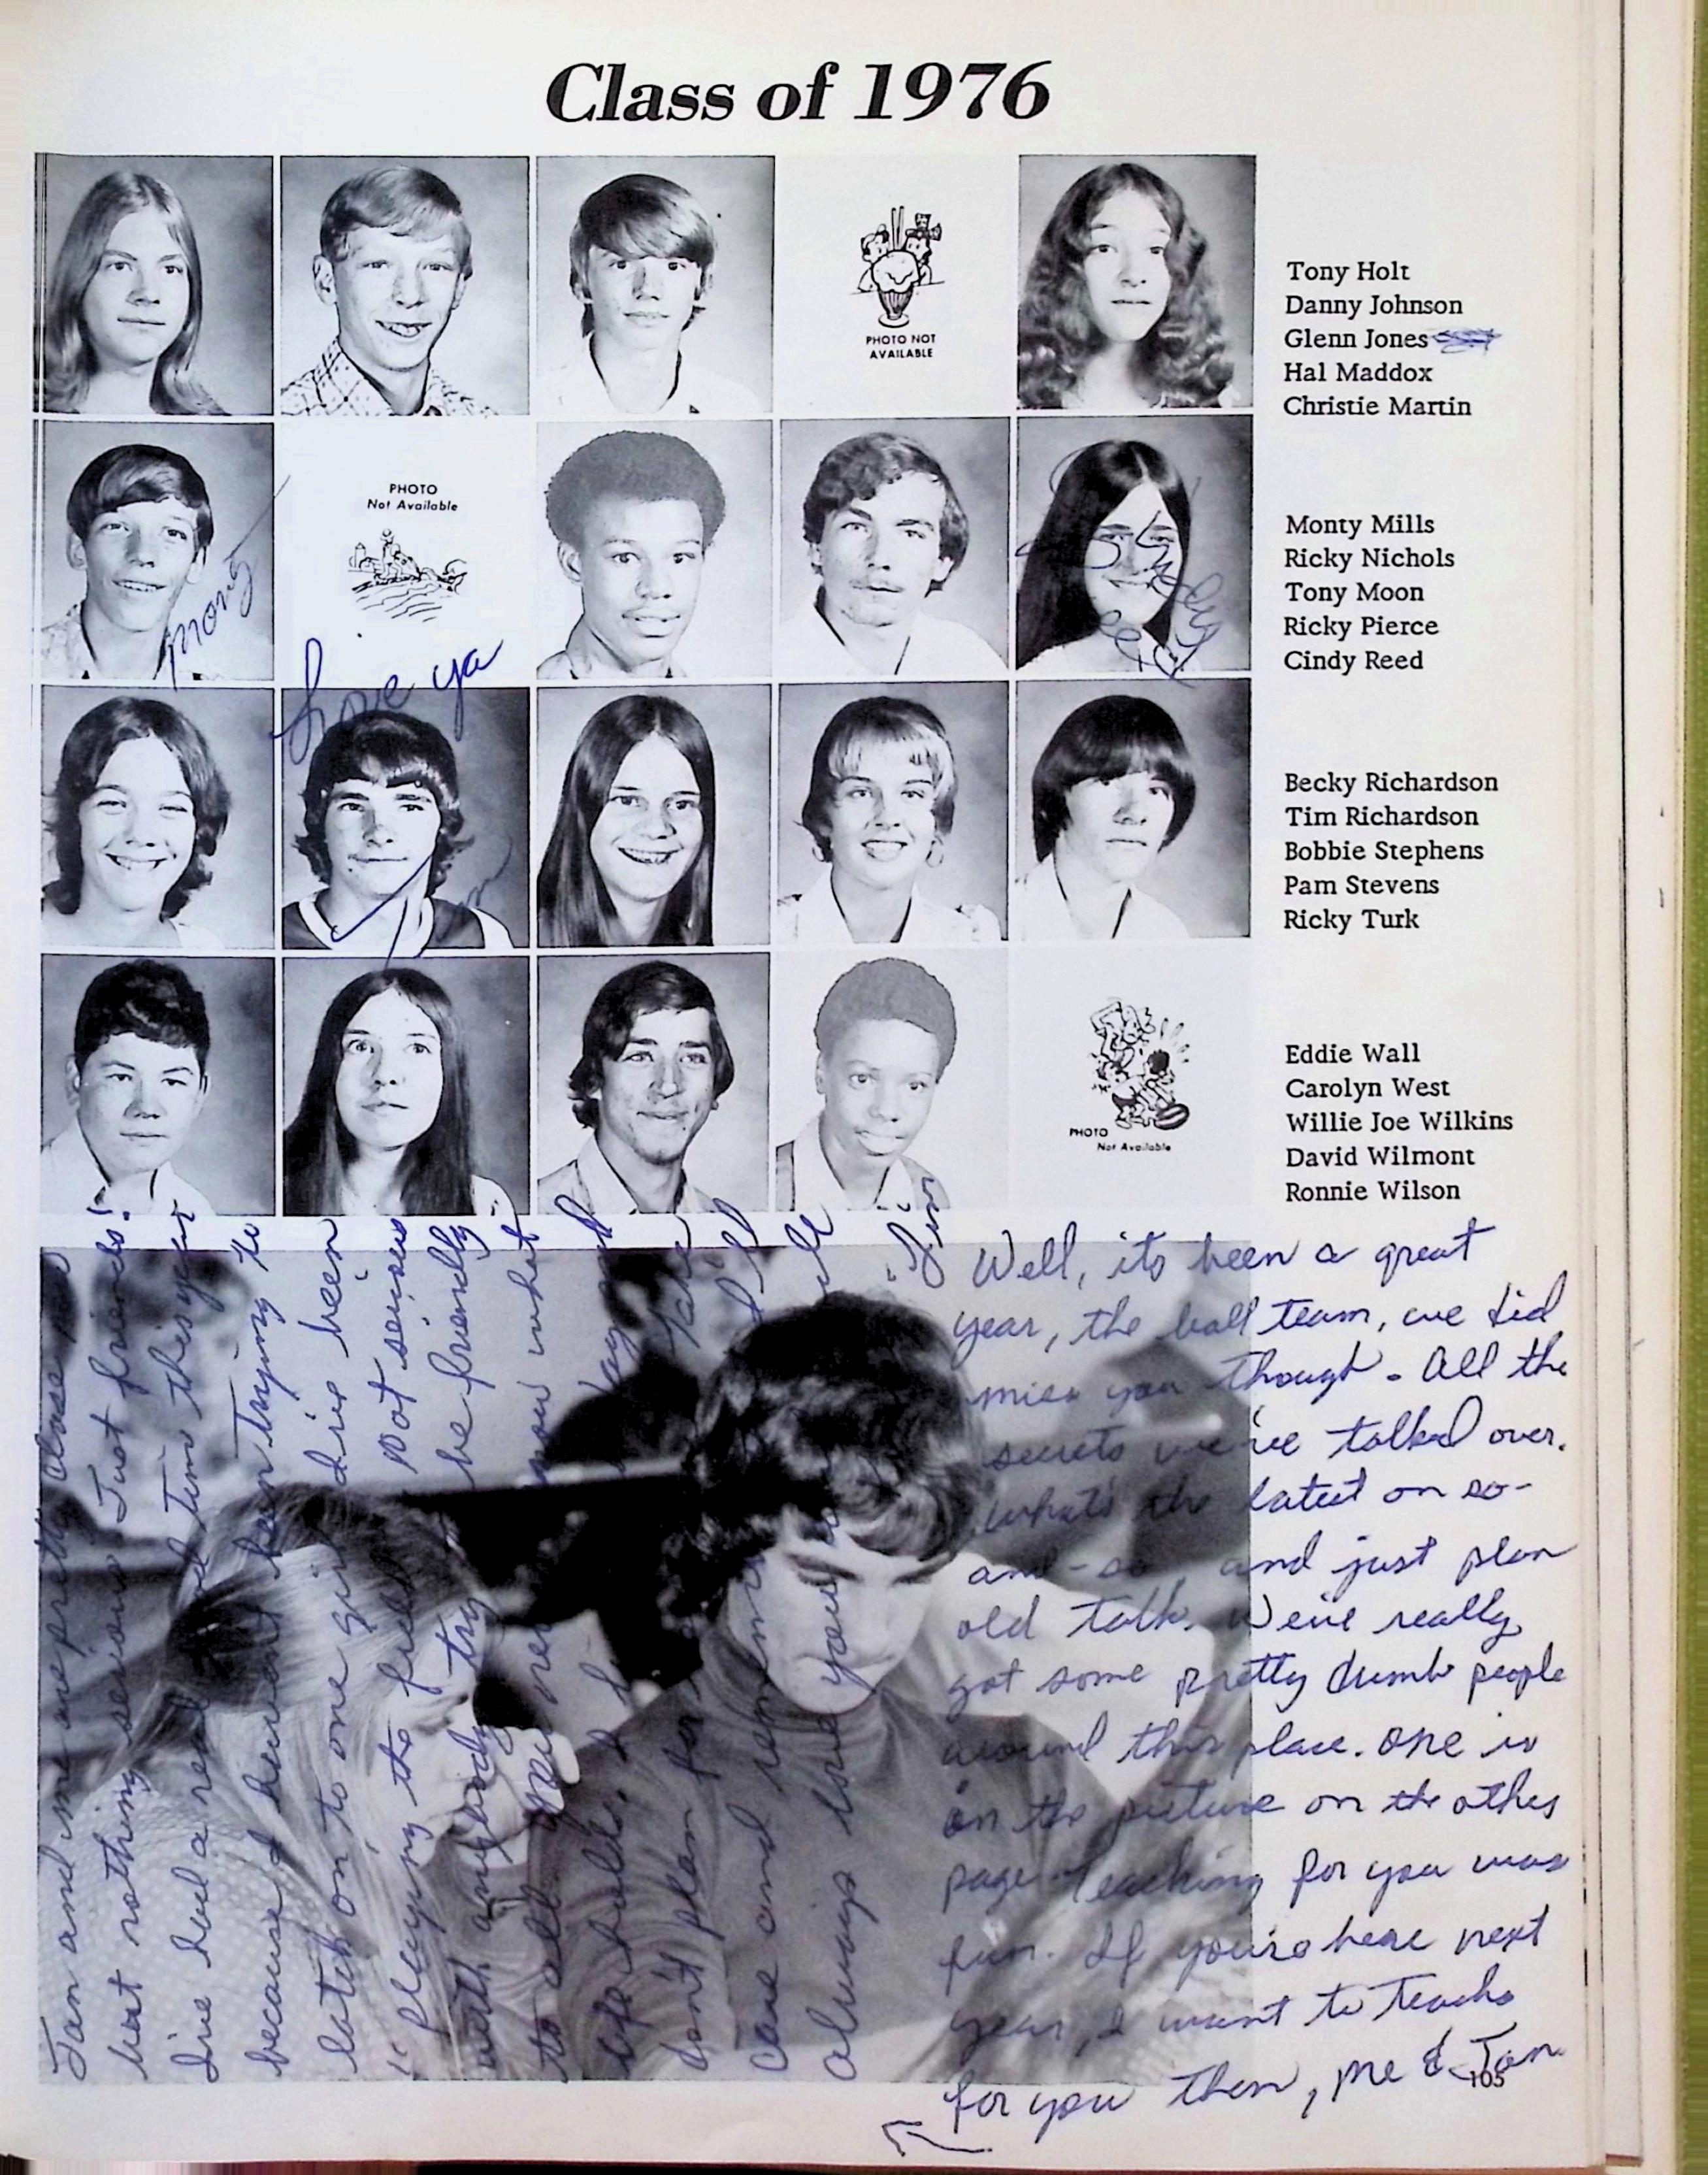 Class of 1976
PHOTO NOT
AVAILABLE
Tony Holt
Danny Johnson
Glenn Jones
Hal Maddox
Christie Martin
PHOTO
Not Available
Monty
Monty Mills
Ricky Nichols
Tony Moon
Ricky Pierce
Cindy Reed
Love ya
Becky Richardson
Tim Richardson
Bobbie Stephens
Pam Stevens
Ricky Turk
PHOTO
Not Available
Eddie Wall
Carolyn West
Willie Joe Wilkins
David Wilmont
Ronnie Wilson
Well, its been a great
year, the ball team, we did
miss you though. All the
secrets we've talked over.
what's the latest on so-
and-so, and just plan
old talk. Weve really
got some pretty dumb people
around this place. One is
on the picture on the other
page. Teaching for you was
fun. If you're here next
year, I want to Teach
for you then, me & Jan
Jan and me are pretty close
but nothing serious Just friends!
I've had a real Time this year
because I haven't been Trying to
latch on to one girl I've been
"playing the field" Not serious
with anybody try be friendly
to all
don't plan for Take
care and
always love you
Jim
105